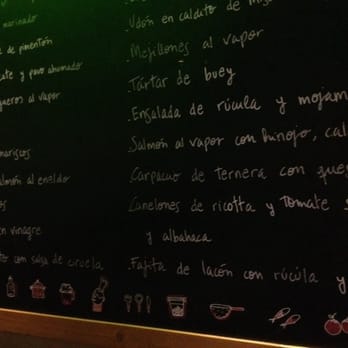 marinado
e de pimentón
cate y pavo ahumado
gueros al vapor
mariscos
almón al eneldo
os
en vinagre
to con salsa de ciruela
Udón en caldito de
Mejillones al vapor
Tártar de buey
Ensalada de rúcula y mojam
Salmón al vapor con hinojo, cal
Carpaccio de Ternera con que
Canelones de ricotta y Tomate s
y albahaca
Fajita de lacón con rúcula y